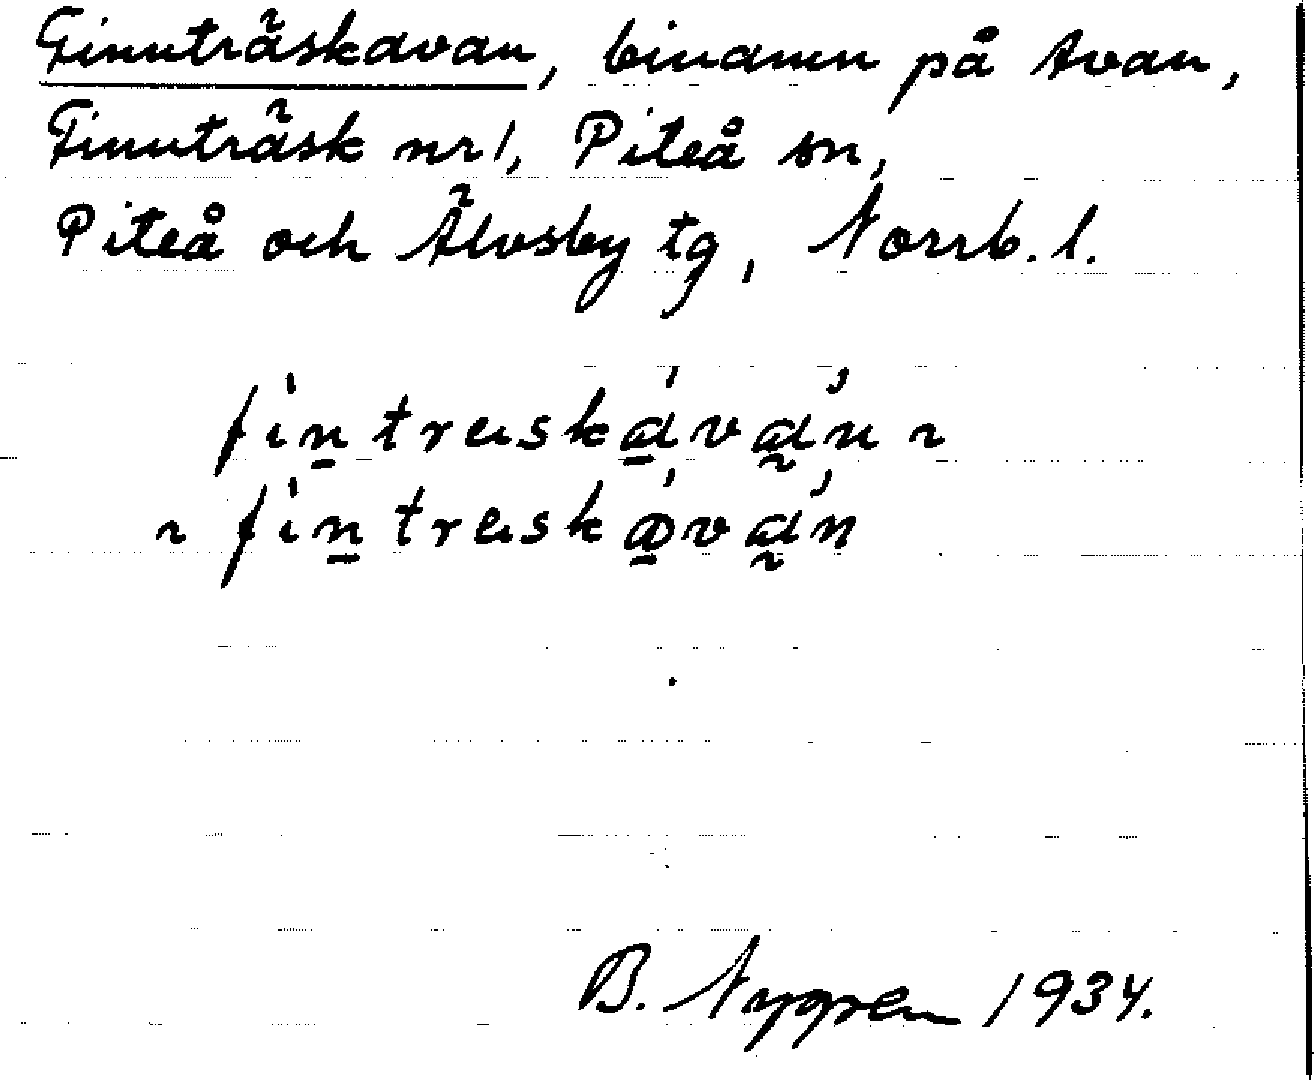 Finnträskavan, binamn på Avan,
Finnträsk nr 1, Piteå sn,
Piteå och Älvsby tg, Norrb. l.
fi̍n̠træska̠̍va̰̍n ~
~ fi̍n̠træskɑ̠̍va̰̍n
B. Nygren 1934.